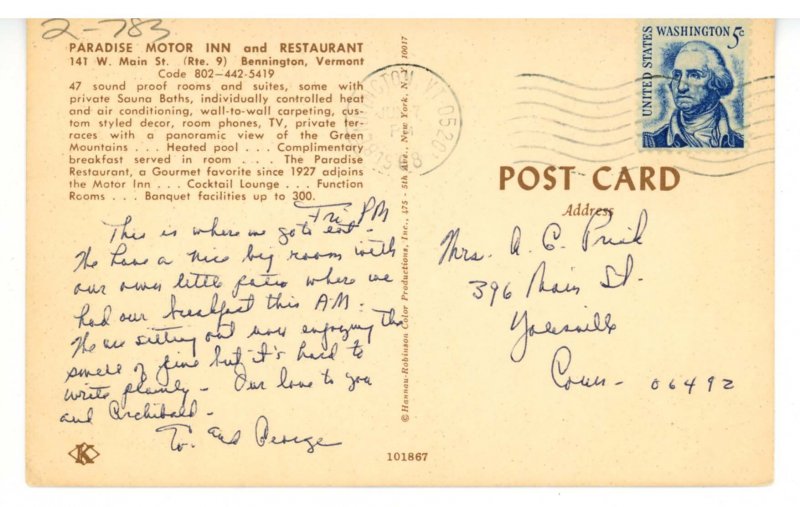 2-783
PARADISE MOTOR INN and RESTAURANT
141 W. Main St. (Rte. 9) Bennington, Vermont
Code 802-442-5419
47 sound proof rooms and suites, some with
private Sauna Baths, individually controlled heat
and air conditioning, wall-to-wall carpeting, cus-
tom styled decor, room phones, TV, private ter-
races with a panoramic view of the Green
Mountains . . . Heated pool . . . Complimentary
breakfast served in room . . . The Paradise
Restaurant, a Gourmet favorite since 1927 adjoins
the Motor Inn . . . Cocktail Lounge . . . Function
Rooms . . . Banquet facilities up to 300.
Fri PM
This is where we go to eat -
We have a nice big room with
our own little patio where we
had our breakfast this AM.
We are sitting out now enjoying the
smell of pine but it's hard to
write plainly - Our love to you
and Archibald -
and George
K
© Hannau-Robinson Color Productions, Inc., 475 - 5th Ave., New York, N.Y. 10017
101867
UNITED STATES
WASHINGTON 5¢
VT 0520
POST CARD
Address
Mrs. A. C.
396 Main St.
Yalesville
Conn - 06492